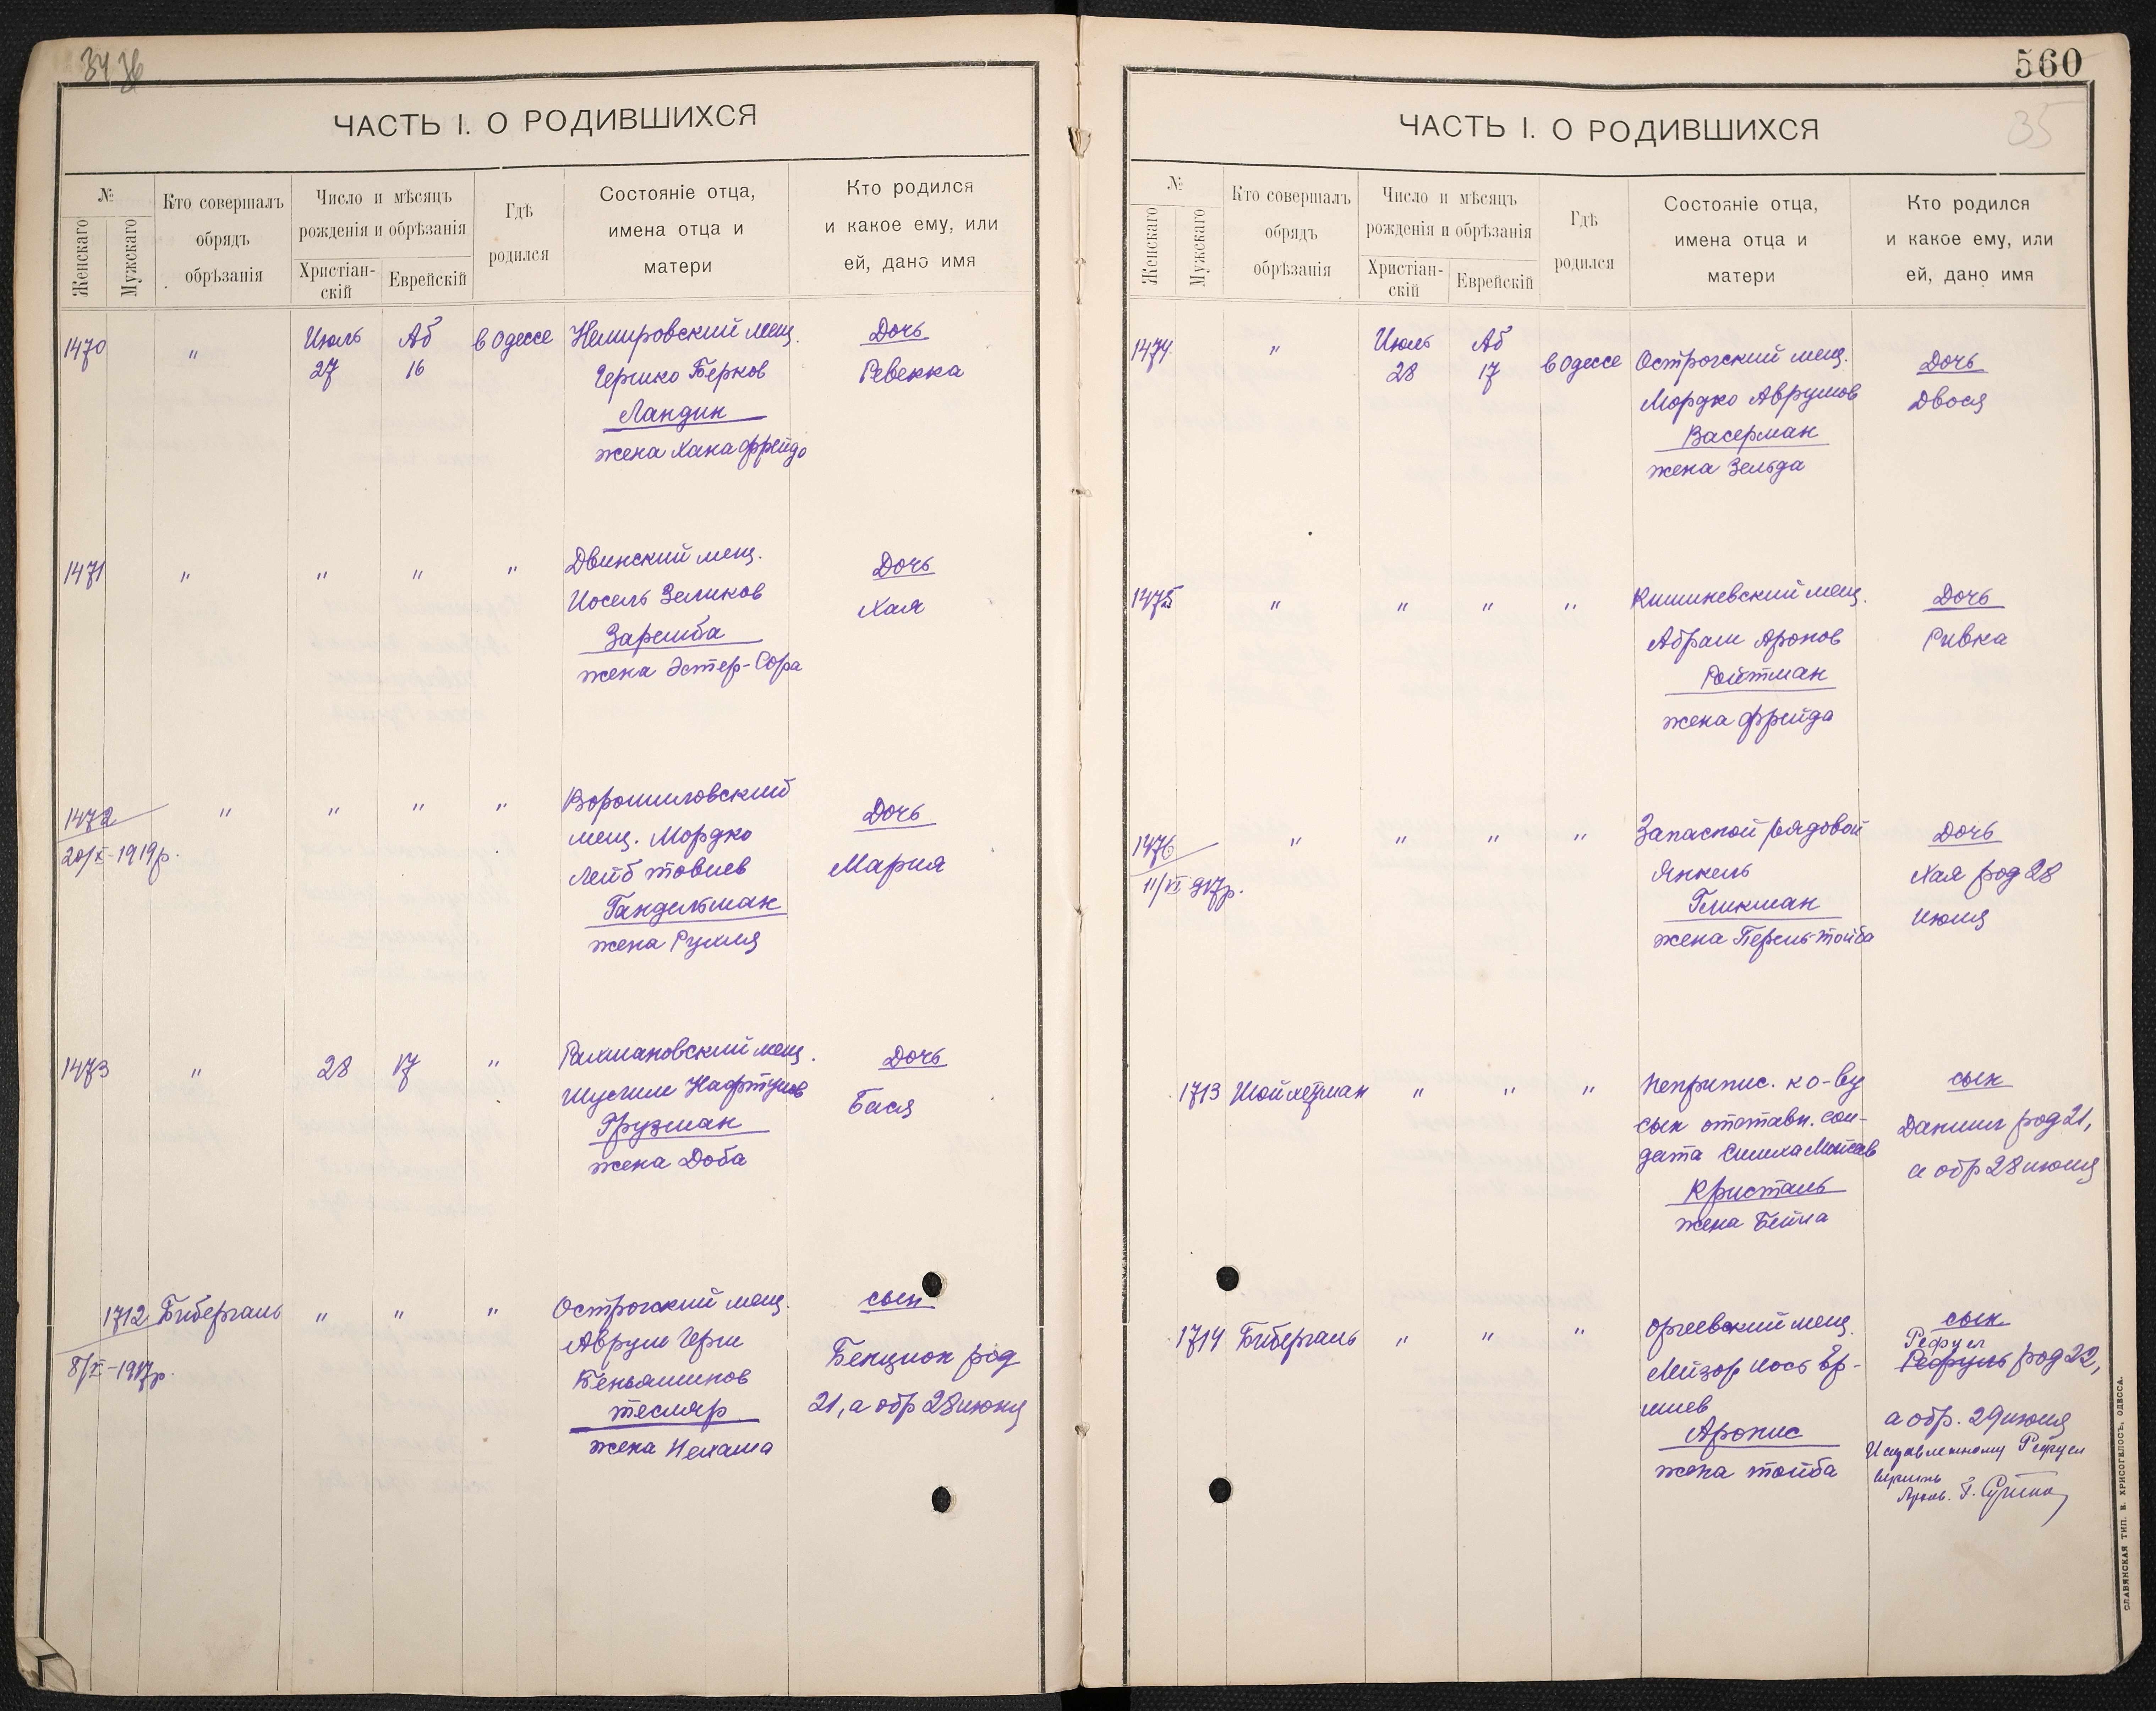 34 36
ЧАСТЬ I. О РОДИВШИХСЯ
№
Женскаго
Мужскаго
Кто совершалъ
обрядъ
обрѣзанія
Число и мѣсяцъ
рожденія и обрѣзанія
Христіан-
скій
Еврейскій
Гдѣ
родился
Состояніе отца,
имена отца и
матери
Кто родился
и какое ему, или
ей, дано имя
1470 " Июль 27 Аб 16 в Одессе
Немировский мещ.
Гершко Берков
Ландин
жена Хана Фрейда
Дочь
Ревекка
1471 " " " "
Двинский мещ.
Иосель Зеликов
Заремба
жена Эстер-Сора
Дочь
Хая
1472 " " " "
20/X-1919р.
Ворошиловский
мещ. Мордко
Лейб Товиев
Гандельман
жена Рухля
Дочь
Мария
1473 " 28 17 "
Рахмановский мещ.
Нафтулов
Грузман
жена Доба
Дочь
Бася
1712 Бибергаль " " "
8/XI-1917р.
Острогский мещ.
Аврум Герш
Беньяминов
Тесляр
жена Нехама
сын
Бенцион род
21, а обр 28 июля
560
35
ЧАСТЬ I. О РОДИВШИХСЯ
№
Женскаго
Мужскаго
Кто совершалъ
обрядъ
обрѣзанія
Число и мѣсяцъ
рожденія и обрѣзанія
Христіан-
скій
Еврейскій
Гдѣ
родился
Состояніе отца,
имена отца и
матери
Кто родился
и какое ему, или
ей, дано имя
1474 " Июль 28 Аб 17 в Одессе
Острогский мещ.
Мордко Аврумов
Васерман
жена Зельда
Дочь
Двося
1475 " " " "
Кишиневский мещ.
Абрам Аронов
Ройтман
жена Фрейда
Дочь
Ривка
1476 " " " "
11/VI 917р.
Запасной рядовой
Янкель
Гликман
жена Перель-Тойба
Дочь
Хая род 28
июля
1713 Шойхетман " " "
Неприпис. к о-ву
сын отставн. сол-
дата Симха
Кристаль
жена Бейла
сын
Даниил род 21,
а обр 28 июля
1714 Бибергаль " " "
Оргеевский мещ.
Лейзор Иось Ер-
шиев
Аронис
жена Тойба
сын
Рефуел
Рефуль род 22,
а обр. 29 июля
Исправленному Рефуел
верить
СЛАВЯНСКАЯ ТИП. Е. ХРИСОГЕЛОСЪ, ОДЕССА.